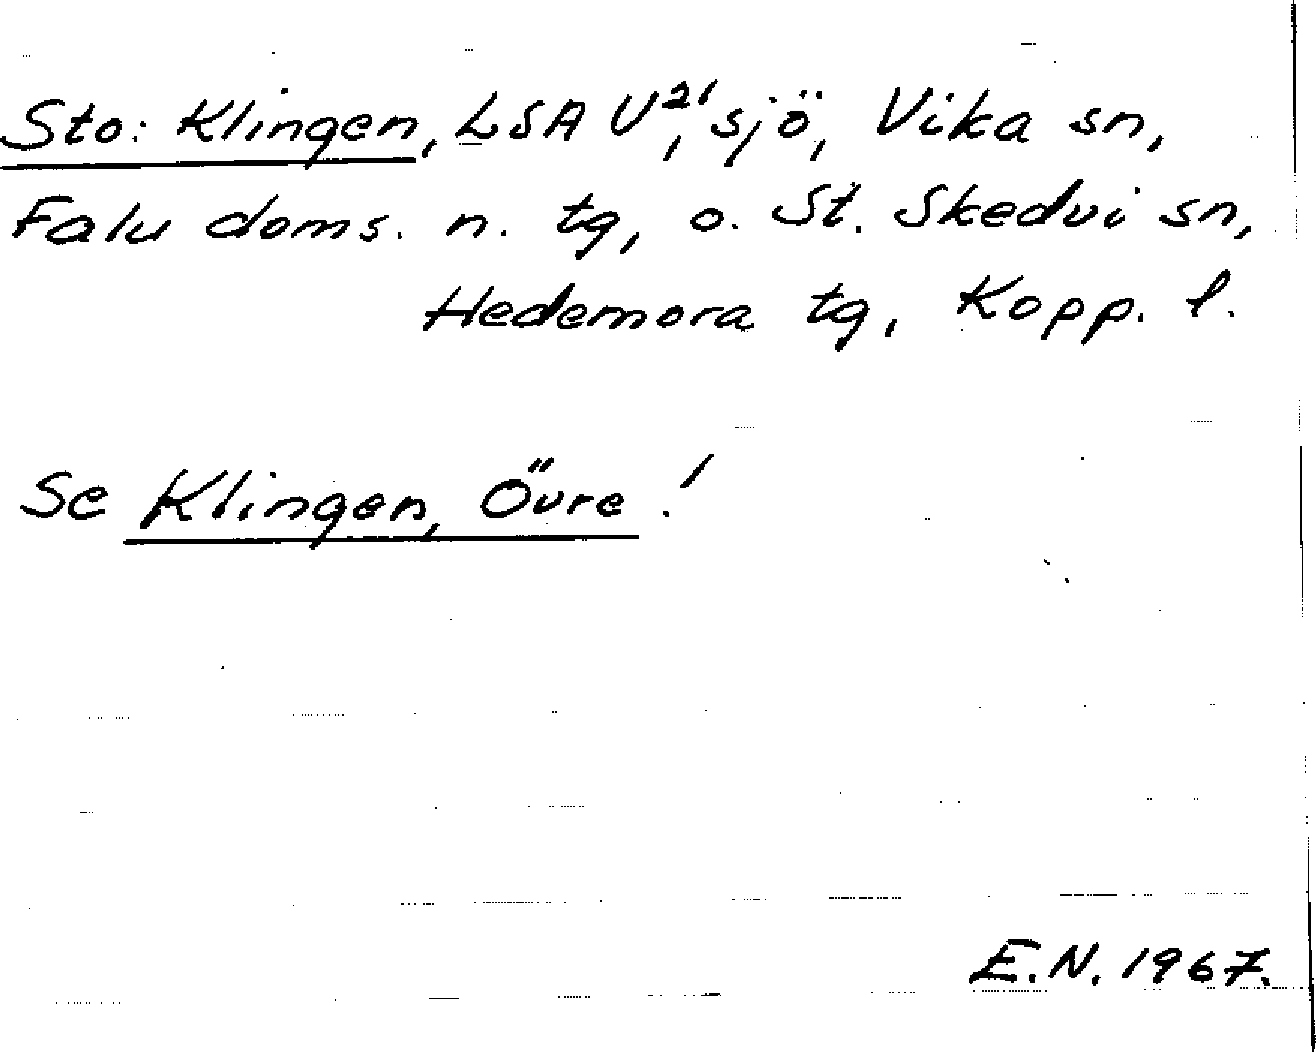 Sto: Klingen, LSA U²¹, sjö, Vika sn,
Falu doms. n. tg, o. St. Skedvi sn,
Hedemora tg, Kopp. l.
Se Klingen, Övre!
E.N. 1967.